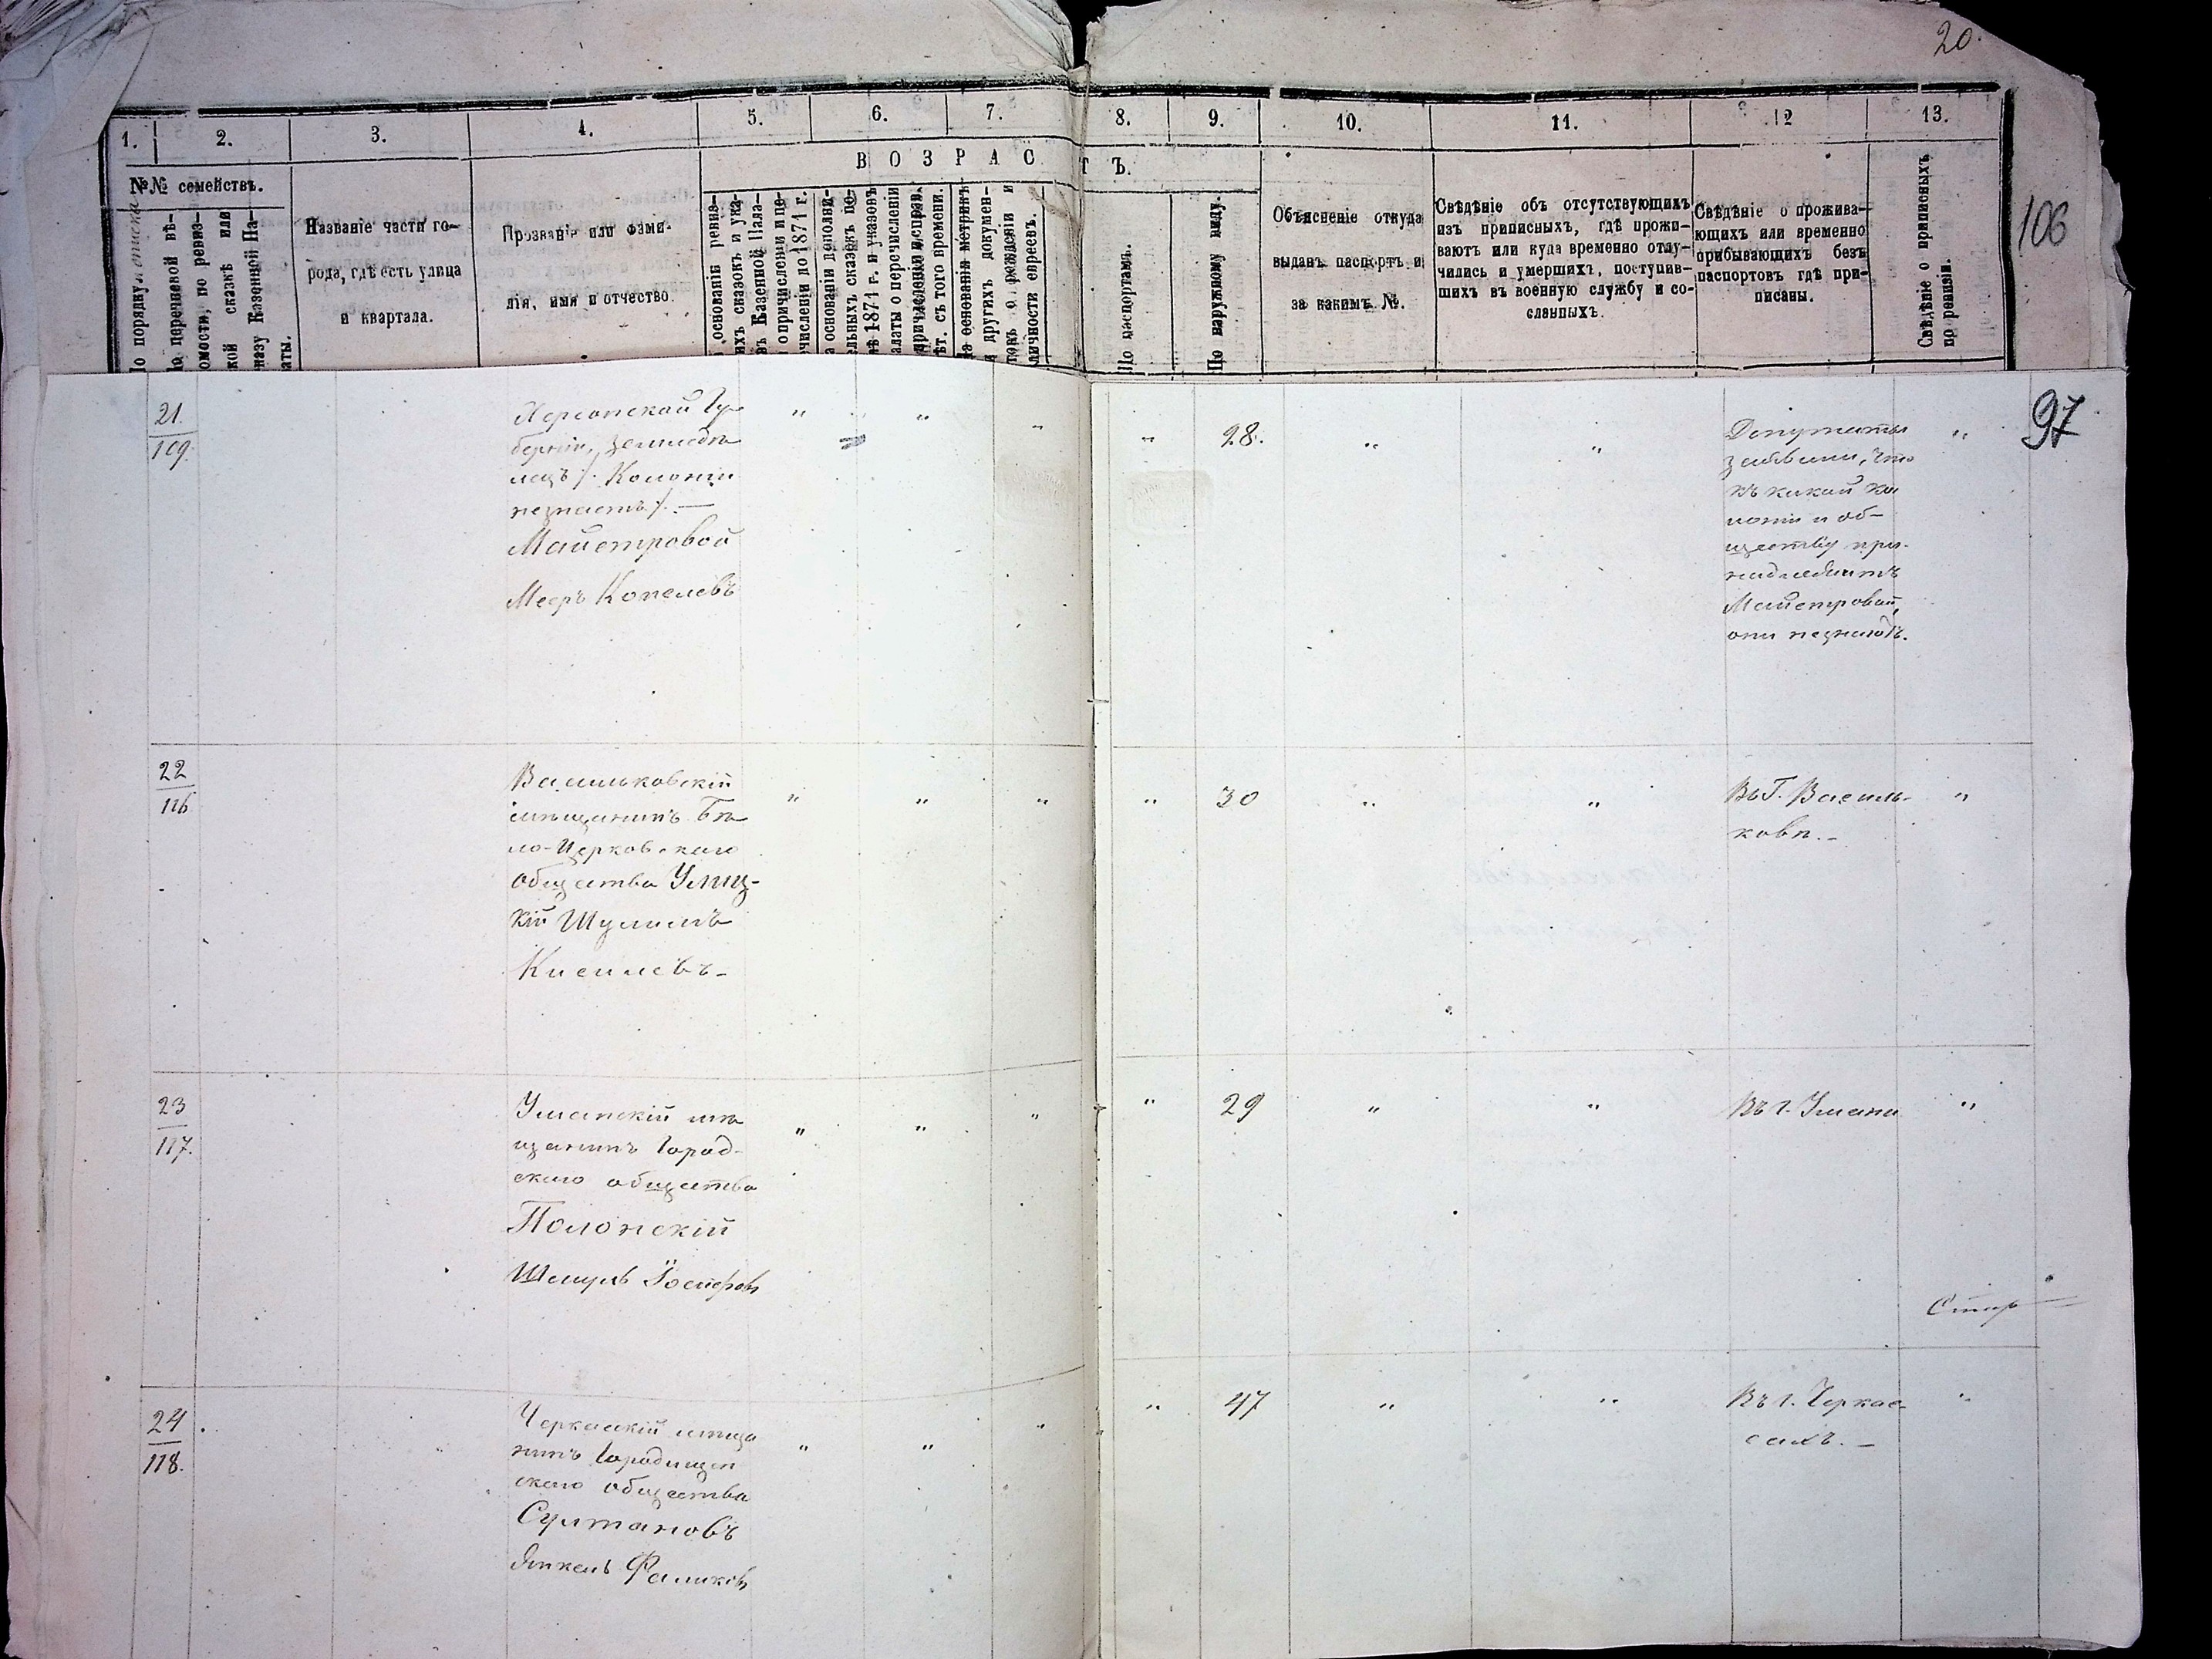 20.
1. 2. 3. 4. 5. 6. 7. 8. 9. 10. 11. 12 13.
В О З Р А С Т Ъ.
№№ семействъ.
По порядку
По переписной вѣ-
домости, по ревиз-
ской сказкѣ или
указу Казенной Па-
латы.
Названіе части го-
рода, гдѣ есть улица
и квартала.
Прозваніе или фами-
лія, имя и отчество.
основаніи ревиз-
ихъ сказокъ и ука-
въ Казенной Пала-
о причисленіи и пе-
численіи до 1871 г.
а основаніи дополни-
ельныхъ сказокъ по-
лѣ 1871 г. и указовъ
алаты о перечисленіи
причисленіи и исправ.
ѣт. съ того времени.
На основаніи метрикъ
и другихъ докумен-
товъ о рожденіи и
личности евреевъ.
По паспортамъ.
По наружному виду.
Объясненіе откуда
выданъ паспортъ и
за какимъ №.
Свѣдѣніе объ отсутствующихъ
изъ приписныхъ, гдѣ прожи-
ваютъ или куда временно отлу-
чились и умершихъ, поступив-
шихъ въ военную службу и со-
сланныхъ.
Свѣдѣніе о прожива-
ющихъ или временно
прибывающихъ безъ
паспортовъ гдѣ при-
писаны.
Свѣдѣніе о приписныхъ
по ревизіи.
106
97
21
109.
Херсонской Гу-
берніи, земледѣ
лецъ /. Колоніи
незнаетъ /. —
Майстровой
Мееръ Копелевъ
" " " " 28. " " "
Депутаты
заявили, что
къ какой ко
лоніи и об-
ществу при-
надлежитъ
Майстровой,
они незнаютъ.
22
116
Васильковскій
мѣщанинъ Бѣ
ло-Церковскаго
общества Улиц-
кій Шулимъ
Кисилевъ-
" " " " 30 " " "
Въ Г. Василь-
ковѣ.-
23
117.
Уманскій мѣ
щанинъ Город-
скаго общества
Полонскій
Шмуль
" " " " 29 " " "
Въ г. Умани
24
118.
Черкасскій мѣща
нинъ Городищен
скаго общества
Султановъ
Янкель Фаликовъ
" " " " 47 " " "
Въ г. Черкас-
сахъ. —